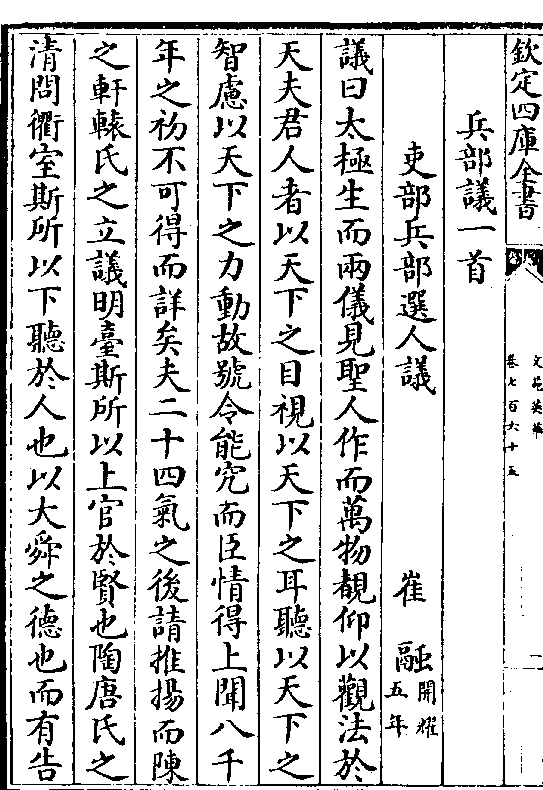 欽定四庫全書
文苑英華
卷七百六十五
二
兵部議一首
吏部兵部選人議 崔融 開耀五年
議曰太極生而兩儀見聖人作而萬物覩仰以觀法於
天夫君人者以天下之目視以天下之耳聽以天下之
智慮以天下之力動故號令能究而臣情得上聞八千
年之初不可得而詳矣夫二十四氣之後請推揚而陳
之軒轅氏之立議明臺斯所以上官於賢也陶唐氏之
清問衢室斯所以下聽於人也以大舜之德也而有告